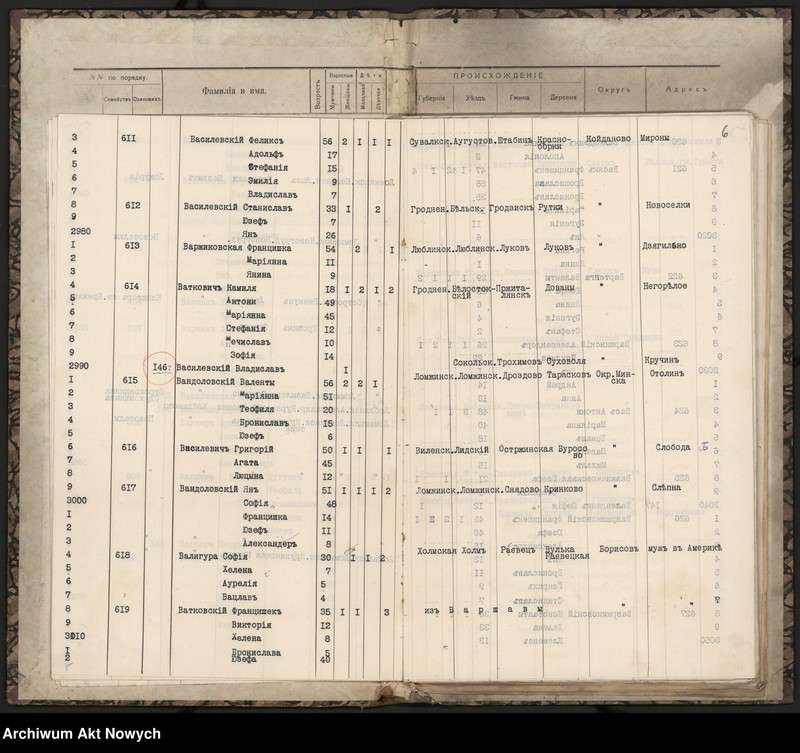 №№ по порядку. Фамилія и имя. Возрастъ Взрослые Дѣти ПРОИСХОЖДЕНІЕ Округъ Адресъ
Семействъ Одинокихъ Мужчины Женщины Мальчики Дѣвочки Губернія Уѣздъ Гмина Деревня
6
3 6II Василевскій Феликсъ 56 2 I I I Сувалкск. Аугустов. Штабинъ Красно-борки Койданово Мироны
4 Адольфъ 17
5 Стефанія I5
6 Эмилія 9
7 Владиславъ 7
8 6I2 Василевскій Станиславъ 33 I 2 Гроднен. Бѣльск. Гродзискъ Рутки " Новоселки
9 Юзефъ 7
2980 Янъ 26
I 6I3 Варжиковская Францишка 54 2 I Люблинск. Люблинск. Луковъ Луковъ " Дзягильно
2 Маріянна II
3 Янина 9
4 6I4 Ваткович Камиля I8 I 2 I 2 Гроднен. Бѣлосток-скій Пржита-лянскъ Дованы " Негорѣлое
5 Антони 49
6 Маріянна 45
7 Стефанія I2
8 Мечиславъ I0
9 Зофія I4
2990 I46 Василевскій Владиславъ I Сокольск. Трохимовъ Суховоля " Кручинъ
I 6I5 Вандоловскій Валенты 56 2 2 I Ломжинск. Ломжинск. Дроздово Тарасковъ Окр.Мин-ска Отолинъ
2 Маріянна 5I
3 Теофиля 20
4 Брониславъ I5
5 Юзефъ 6
6 6I6 Василевичъ Григорій 50 I I I Виленск. Лидскій Остржинская Буросово " Слобода
7 Агата 45
8 Люцына I2
9 6I7 Вандоловскій Янъ 5I I I I 2 Ломжинск. Ломжинск. Снядово Кринково " Слѣпна
3000 Софія 48
I Францишка I4
2 Юзефъ II
3 Александеръ 8
4 6I8 Валигура Софія 30 I I 2 Холмская Холмъ Раевецъ Вулька Раевецкая Борисовъ мужъ въ Америкѣ
5 Хелена 7
6 Аурелія 5
7 Вацлавъ 4
8 6I9 Ватковскій Францишек 35 I I 3 изъ Варшавы " "
9 Викторія I2
3010 Хелена 8
I Бронислава 5
2 Юзефа 40
Archiwum Akt Nowych